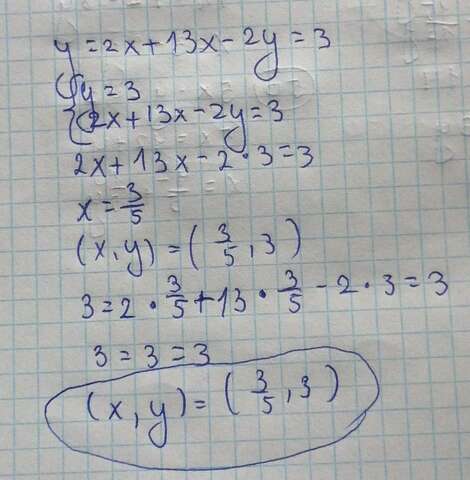 y = 2x + 13x - 2y = 3
{ y = 3
{ 2x + 13x - 2y = 3
2x + 13x - 2 · 3 = 3
x = 3/5
(x, y) = (3/5, 3)
3 = 2 · 3/5 + 13 · 3/5 - 2 · 3 = 3
3 = 3 = 3
(x, y) = (3/5, 3)